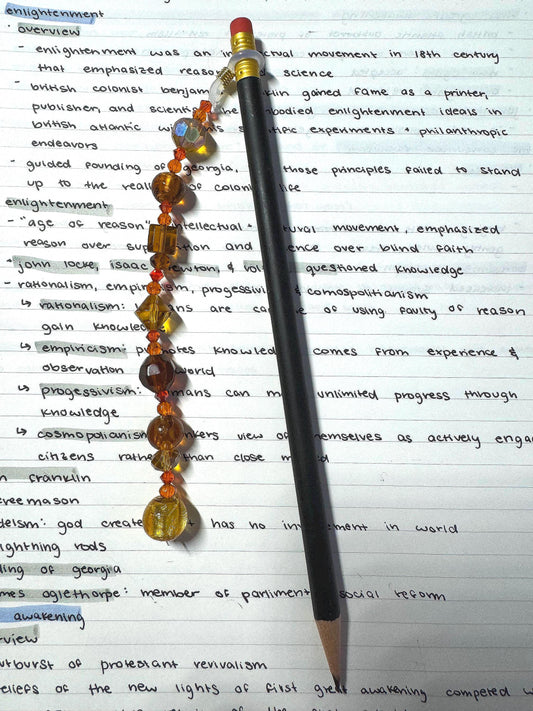 enlightenment
· overview
- enlightenment was an in ctual movement in 18th century
that emphasized reaso d science
- british colonist benjam klin gained fame as a printer,
publisher, and scientis he bodied enlightenment ideals in
british atlantic wi his s ific experiments + philanthropic
endeavors
- guided founding of georgia, those principles failed to stand
up to the reali of coloni life
enlightenment
- "age of reason" intellectual + tural movement, emphasized
reason over sup tion and ence over blind faith
· john locke, isaac ewton, & vol questioned knowledge
- rationalism, empiri sm, progessivi & comospolitianism
↳ rationalism: ns are ca e of using faulty of reason
gain knowle
↳ empiricism: p otes knowled comes from experience &
observation world
↳ progessivism: mans can m unlimited progress through
knowledge
↳ cosmopolianism nkers view o emselves as actively enga
citizens rathe than close m d
n franklin
freemason
deism: god create t has no inv ement in world
lightning rods
ding of georgia
mes oglethorpe: member of parliment social reform
awakening
rview
utburst of protestant revivalism
eliefs of the new lights of first great awakening competed w